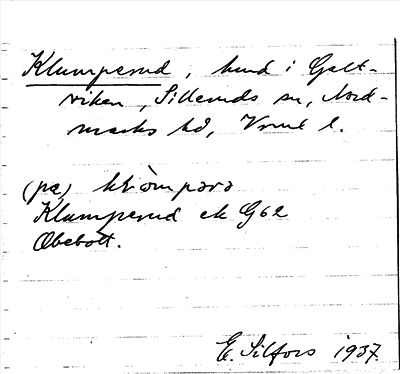 Klumperud, hmd i Galt-
viken, Silleruds sn, Nord-
marks hd, Vrml l.
(på)
Klumperud ek G62
Obebott.
E. Silfors 1937.